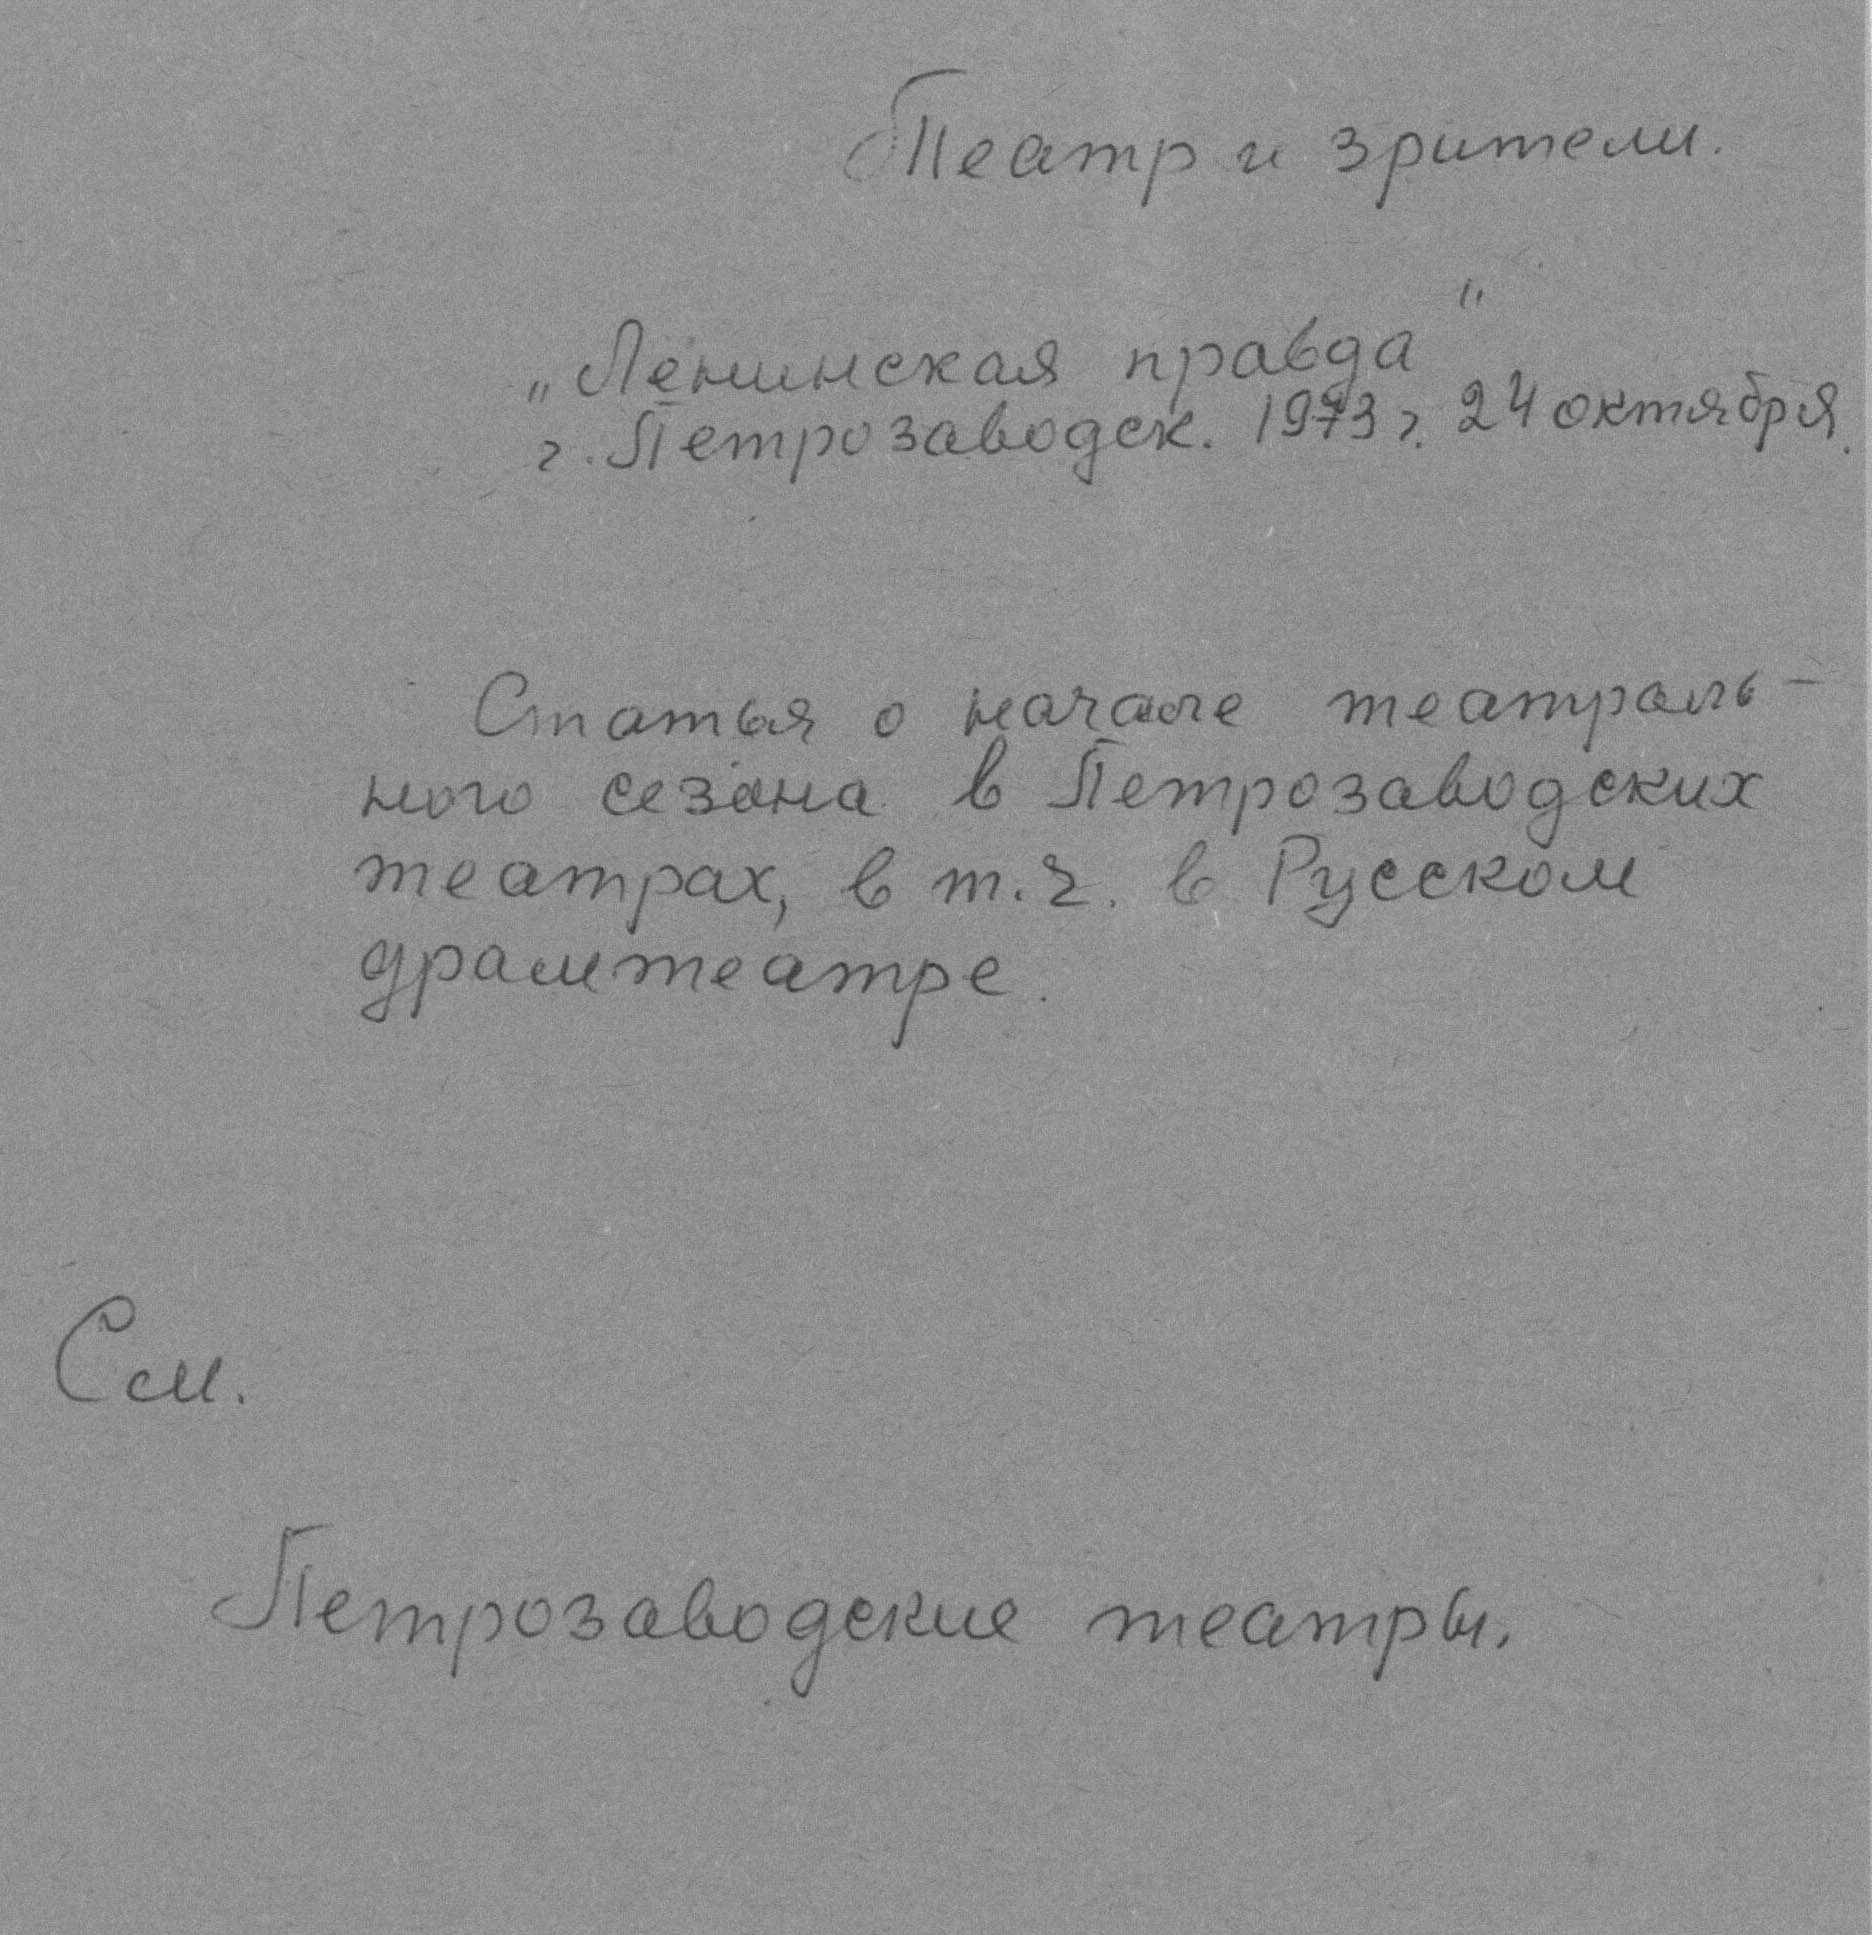 Театр и зрители.
„Ленинская правда"
г. Петрозаводск. 1973 г. 24 октября.
Статья о начале театраль-
ного сезона в Петрозаводских
театрах, в т.ч. в Русском
драмтеатре.
См.
Петрозаводские театры.